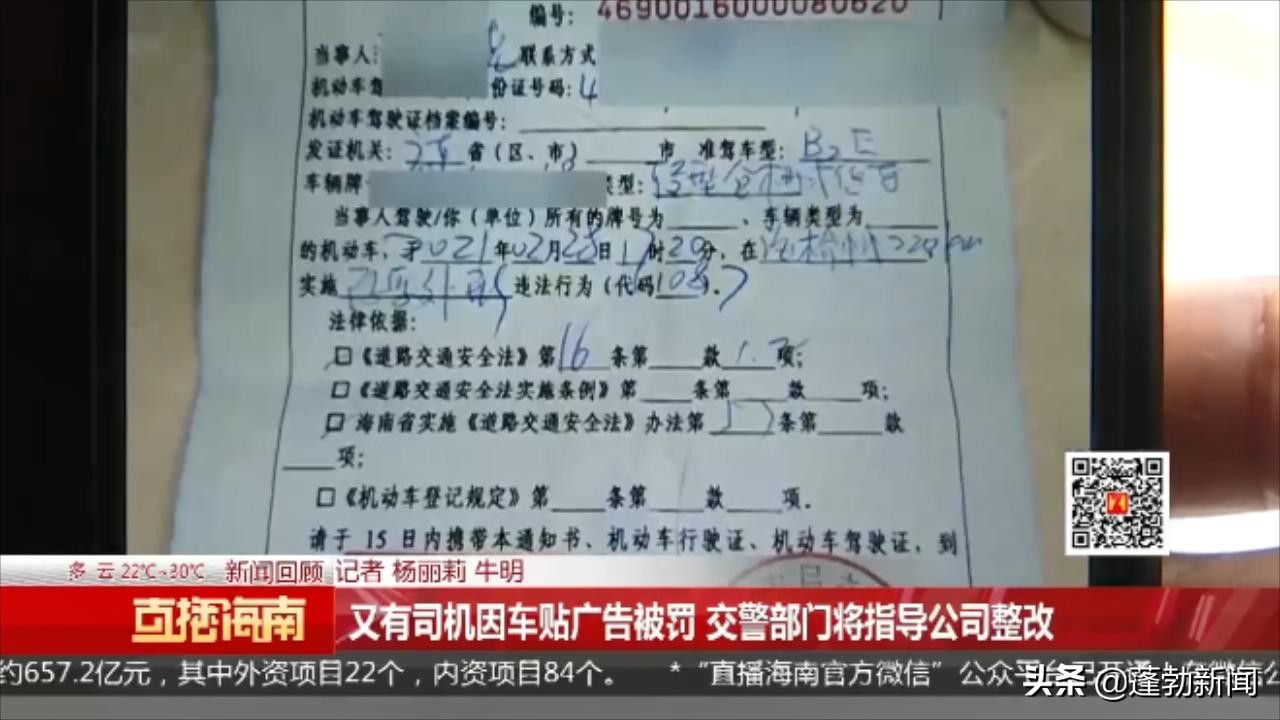 编号: 4690016000080620
当事人: 联系方式
机动车驾 份证号码: 4
机动车驾驶证档案编号:
发证机关: 省(区、市) 市 准驾车型: B2E
车辆牌 类型:
当事人驾驶/你(单位)所有的牌号为 、车辆类型为
的机动车,于2021年02月23日17时20分,在
实施 违法行为(代码108).
法律依据:
□《道路交通安全法》第16条第 款1. 项;
□《道路交通安全法实施条例》第 条第 款 项;
□ 海南省实施《道路交通安全法》办法第 条第 款
项;
□《机动车登记规定》第 条第 款 项.
请于 15 日内携带本通知书、机动车行驶证、机动车驾驶证,到
多云 22℃~30℃ 新闻回顾 记者 杨丽莉 牛明
直播海南 又有司机因车贴广告被罚 交警部门将指导公司整改
约657.2亿元,其中外资项目22个,内资项目84个。 *“直播海南官方微信”公众平台已开通
头条 @蓬勃新闻